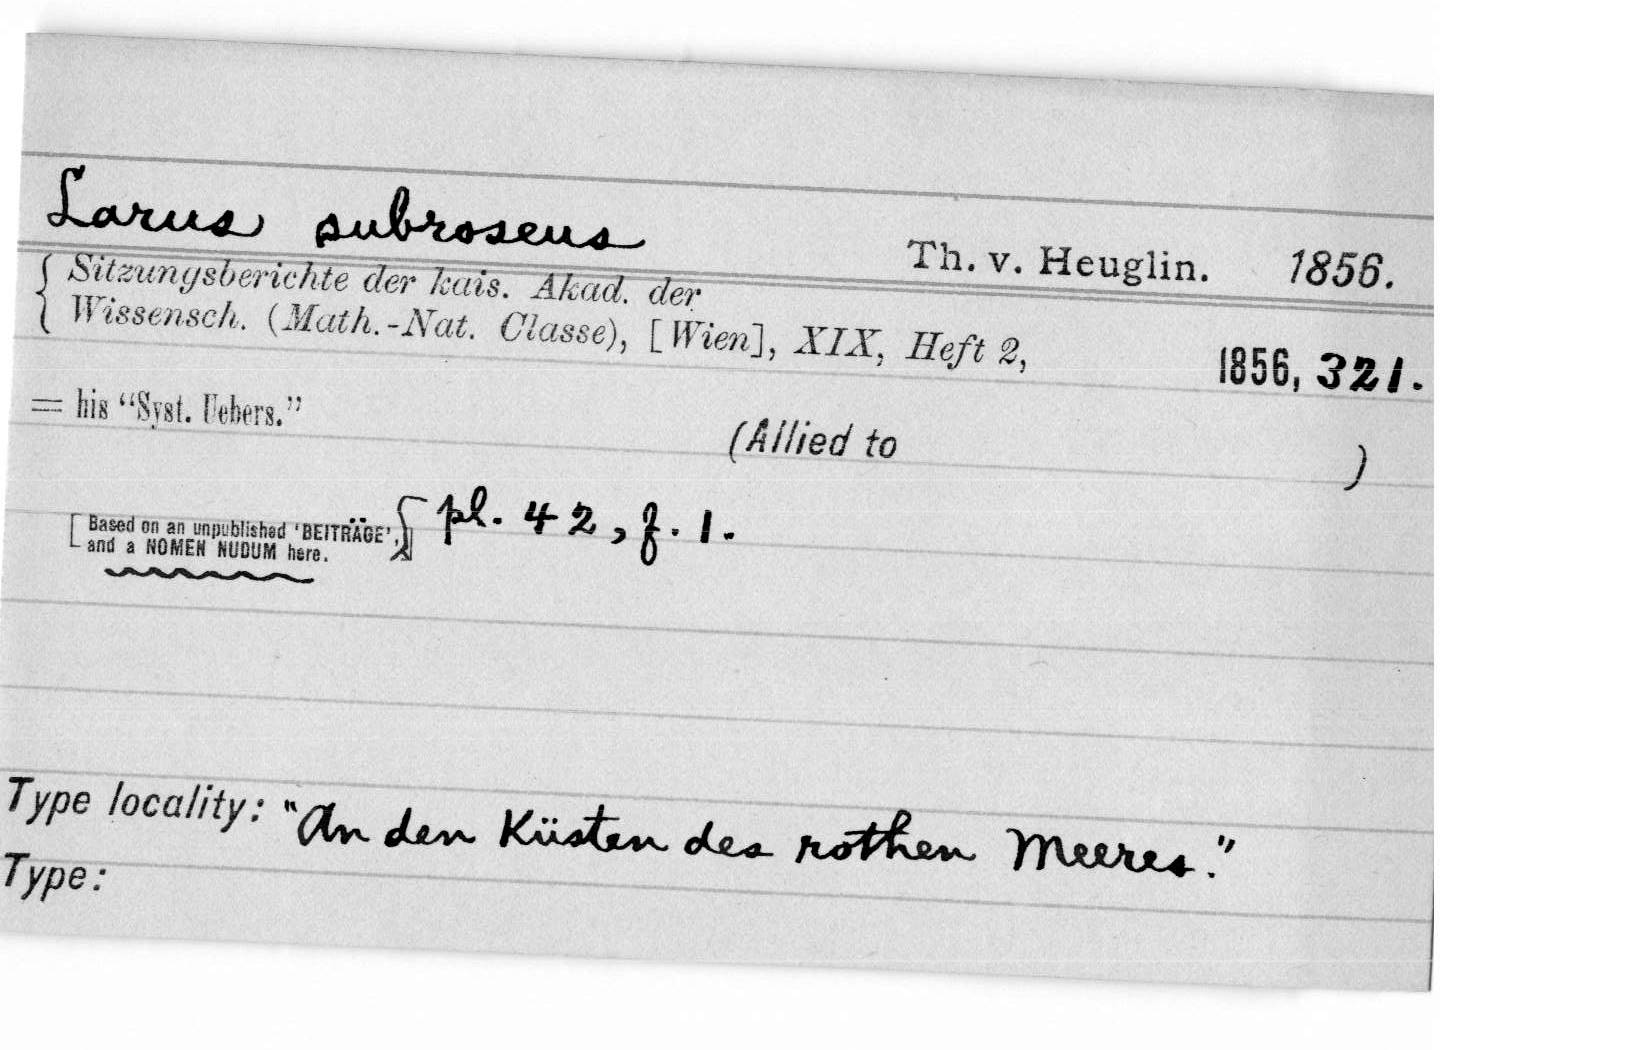 Larus subroseus
Th. v. Heuglin. 1856.
{ Sitzungsberichte der kais. Akad. der
Wissensch. (Math.-Nat. Classe), [Wien], XIX, Heft 2,
1856, 321.
= his “Syst. Uebers.”
(Allied to )
[Based on an unpublished 'BEITRÄGE',
and a NOMEN NUDUM here.]
pl. 42, f. 1.
Type locality: "An den Küsten des rothen Meeres."
Type: